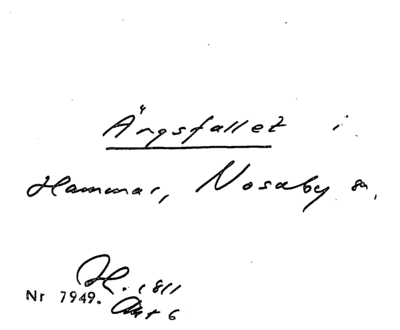 Ängsfallet i
Hammar, Nosaby sn,
H. 1811
Nr 7949.
Akt 6